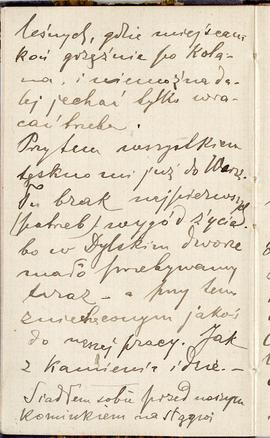 leśnych, gdzie miejscami
koń grzęźnie po kola-
na, i niemożna da-
lej jechać tylko wra-
cać trzeba.
Przytem wszystkiem
tęskno mi już do Warsz.
Tu brak najpierwszych
(potrzeb) wygód życia
bo w Dylskim dworze
mało przebywamy
teraz – a przy tem
zniechęconym jakoś
do mojej pracy. Jak
z kamienia idzie. –
Siadłem sobie przed naszym
kominkiem na